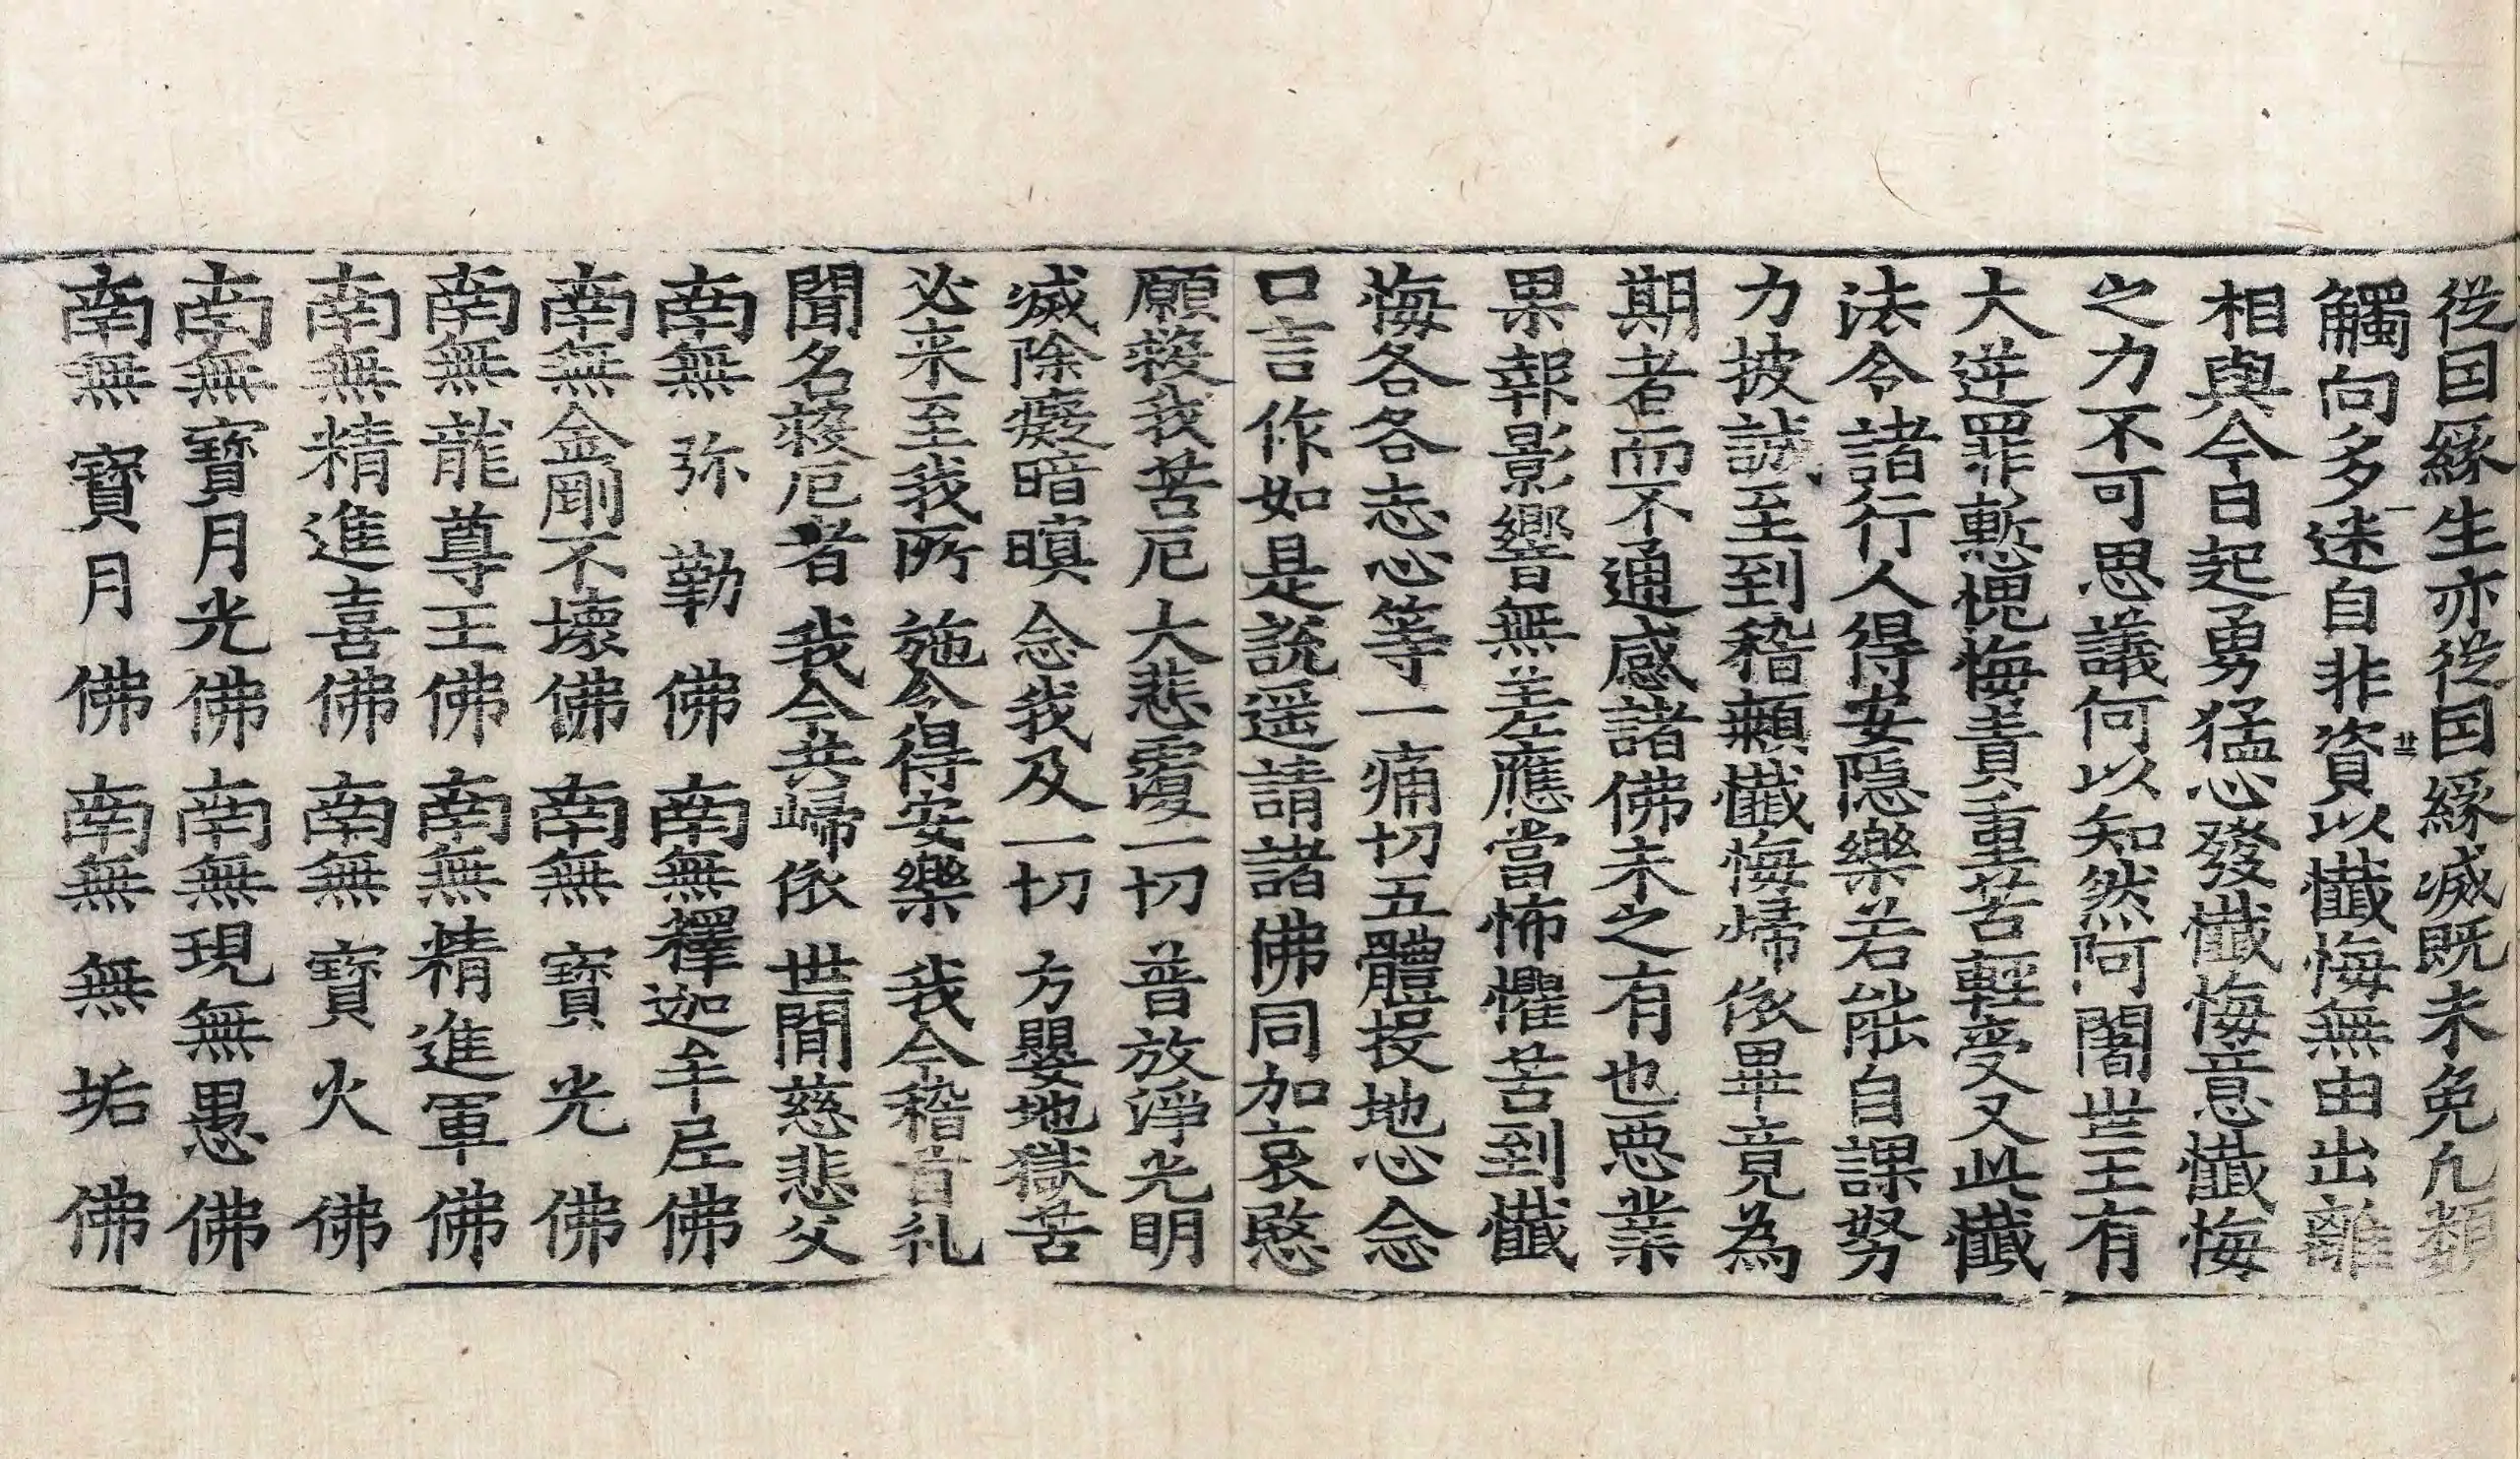 從因緣生亦從因緣滅旣未免凢類
觸向多迷自非資以懺悔無由出離
相與今日起勇猛心發懺悔意懺悔
之力不可思議何以知然阿闍世王有
大逆罪慙愧悔責重苦輕受又此懺
法令諸行人得安隱樂若能自課努
力披誠至到稽顙懺悔歸依畢竟為
期者而不通感諸佛未之有也惡業
果報影響無差應當怖懼苦到懺
悔各各志心等一痛切五體投地心念
口言作如是說遥請諸佛同加哀愍
願救我苦厄 大悲覆一切 普放淨光明
滅除癡暗暝 念我及一切 方嬰地獄苦
必来至我所 施令得安樂 我今稽首礼
聞名救厄者 我今共歸依 世間慈悲父
南無弥勒佛 南無釋迦牟尼佛
南無金剛不壞佛 南無寶光佛
南無龍尊王佛 南無精進軍佛
南無精進喜佛 南無寶火佛
南無寶月光佛 南無現無愚佛
南無寶月佛 南無無垢佛